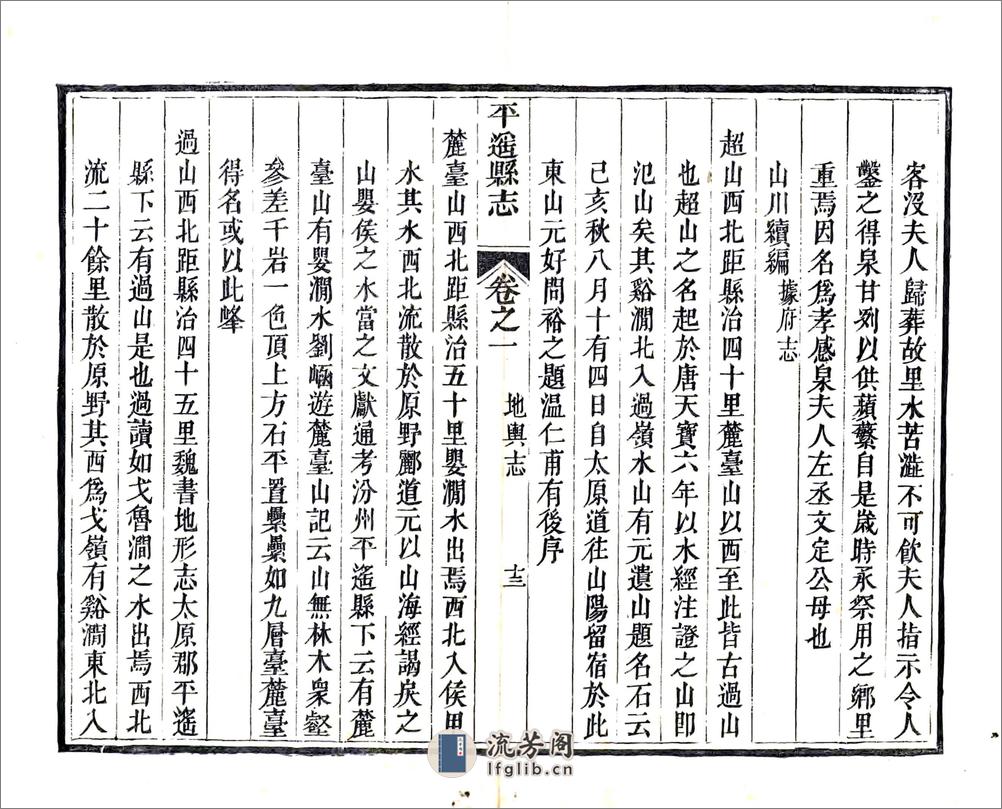 客沒夫人歸葬故里水苦澁不可飲夫人指示令人
鑿之得泉甘列以供蘋蘩自是歲時承祭用之鄉里
重焉因名爲孝感泉夫人左丞文定公母也
山川續編據府志
超山西北距縣治四十里麓臺山以西至此皆古過山
也超山之名起於唐天寶六年以水經注證之山卽
氾山矣其谿澗北入過嶺水山有元遺山題名石云
己亥秋八月十有四日自太原道往山陽留宿於此
東山元好問裕之題温仁甫有後序
平遥縣志 卷之一 地輿志 十三
麓臺山西北距縣治五十里嬰澗水出焉西北入侯甲
水其水西北流散於原野酈道元以山海經謁戾之
山嬰侯之水當之文獻通考汾州平遙縣下云有麓
臺山有嬰澗水劉崡遊麓臺山記云山無林木衆壑
參差千岩一色頂上方石平置纍纍如九層臺麓臺
得名或以此峰
過山西北距縣治四十五里魏書地形志太原郡平遙
縣下云有過山是也過讀如戈魯澗之水出焉西北
流二十餘里散於原野其西爲戈嶺有谿澗東北入
流芳阁
lfglib.cn